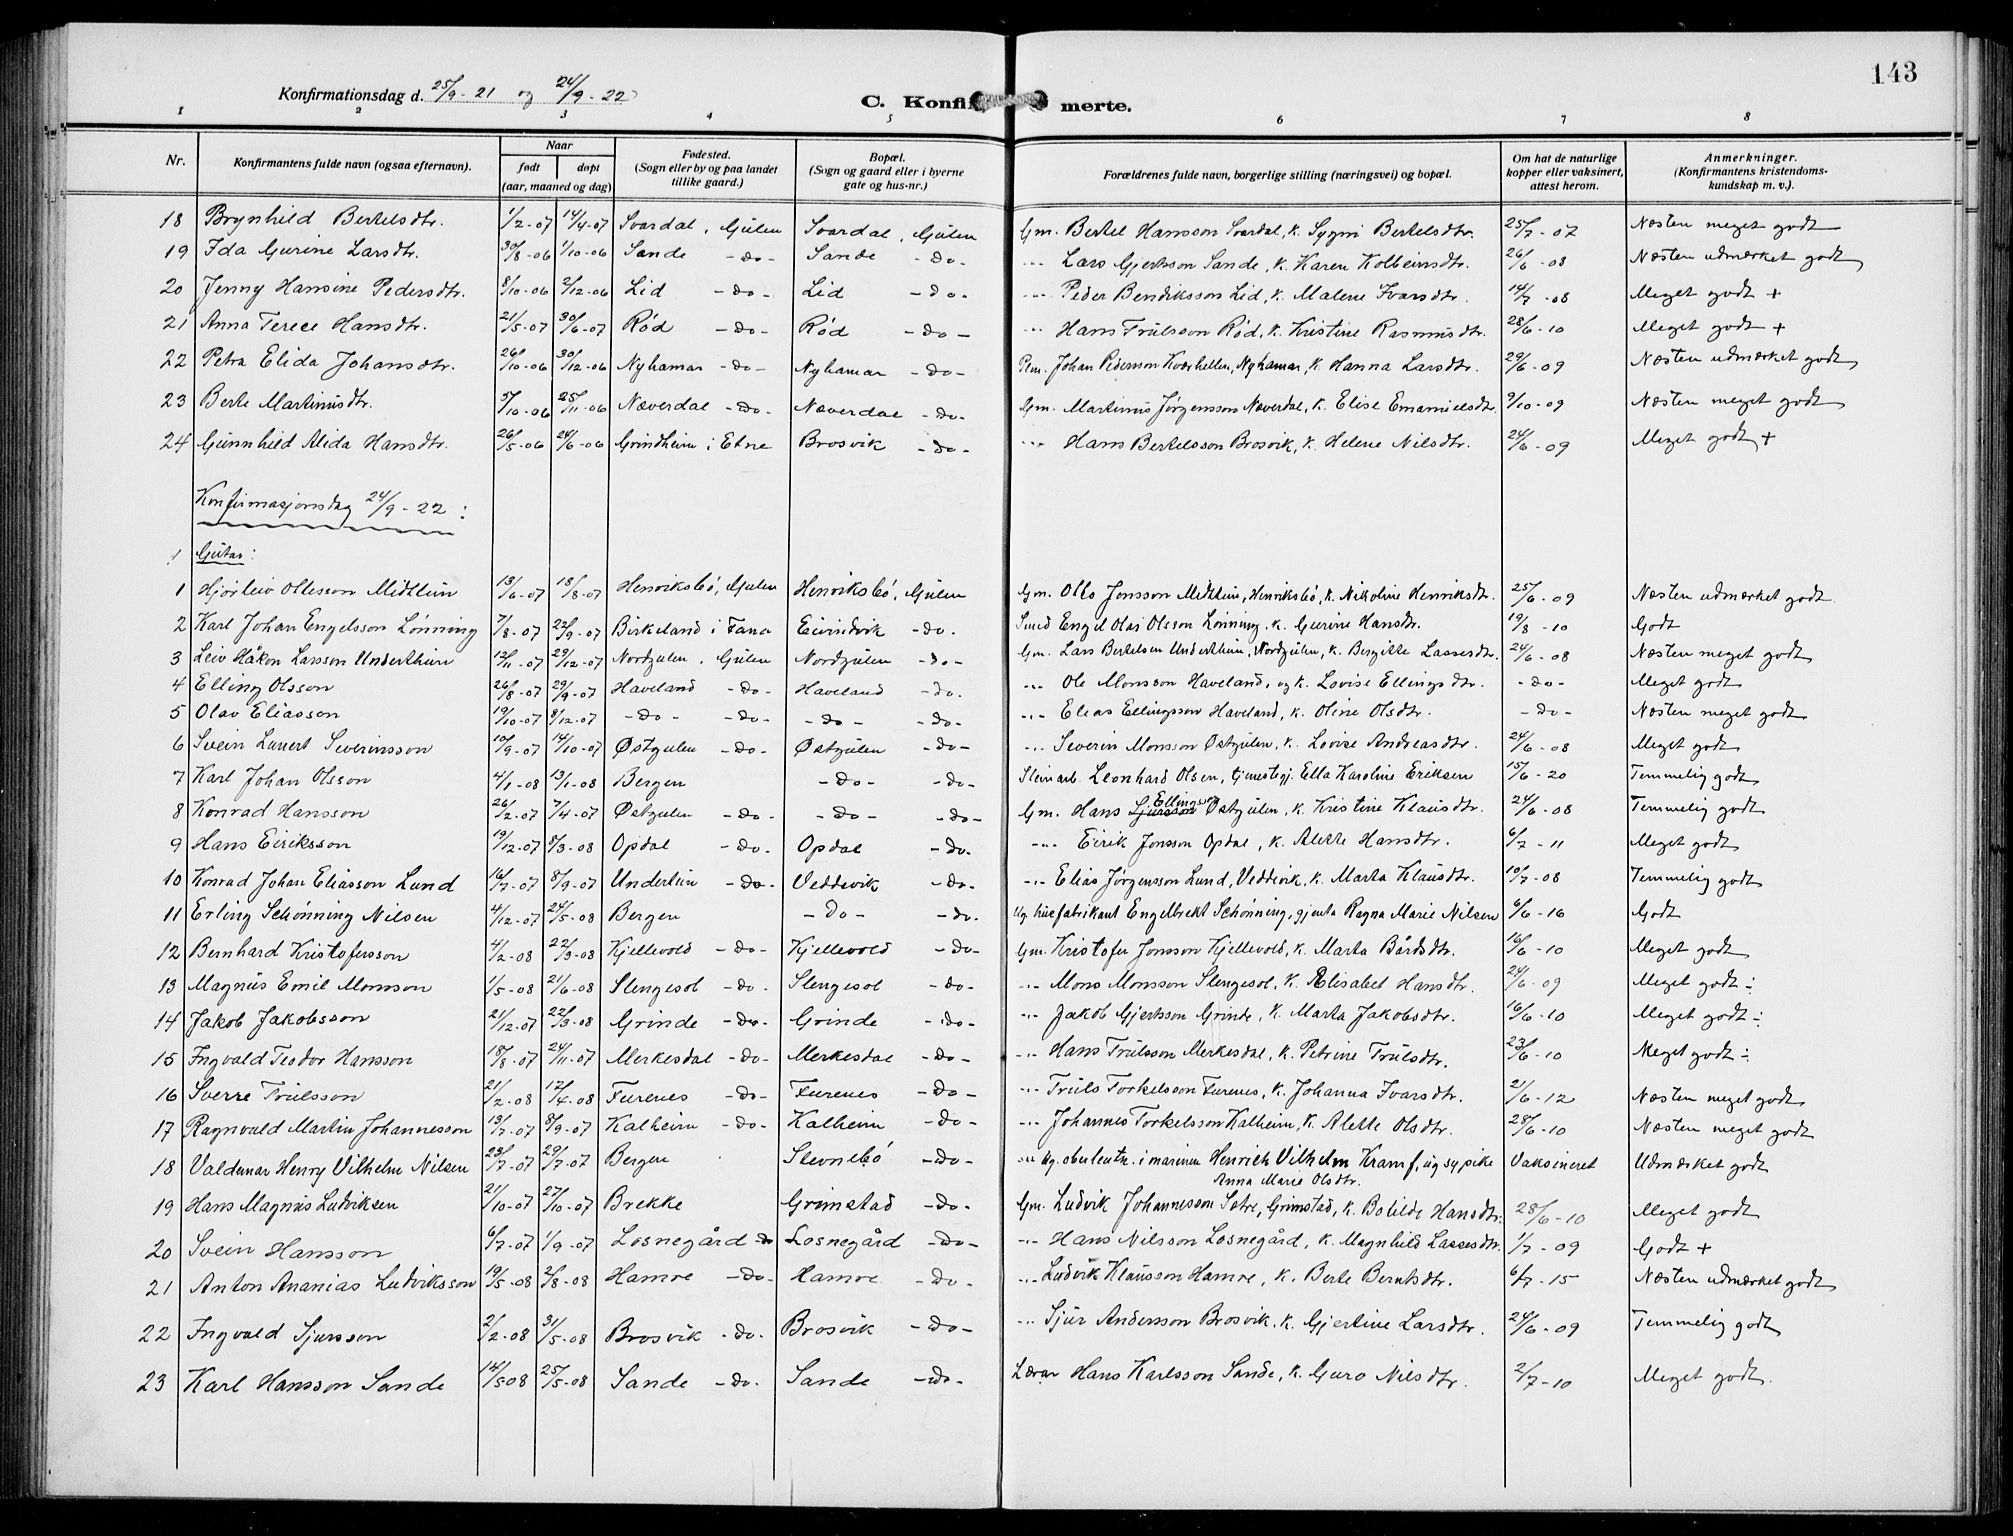 143
Konfirmationsdag d. 25/9-21 og 24/9-22
C. Konfirmerte.
1 2 3 4 5 6 7 8
Nr. Konfirmantens fulde navn (ogsaa efternavn). Naar født døpt (aar, maaned og dag) Fødested. (Sogn eller by og paa landet tillike gaard.) Bopæl. (Sogn og gaard eller i byerne gate og hus-nr.) Forældrenes fulde navn, borgerlige stilling (næringsvei) og bopæl. Om hat de naturlige kopper eller vaksinert, attest herom. Anmerkninger. (Konfirmantens kristendomskundskap m. v.).
18 Brynhild Bertelsdtr. 1/2-07 14/4-07 Svardal, Gulen Svardal, Gulen Gm. Bertel Hansson Svardal, k. Sygni Bertelsdtr. 25/7-07 Næsten meget godt
19 Ida Gurine Larsdtr. 30/8-06 1/10-06 Sande -do- Sande -do- -"- Lars Gjertsson Sande, k. Karen Kolbeinsdtr. 26/6-08 Næsten udmærket godt
20 Jenny Hansine Pedersdtr. 8/10-06 2/12-06 Lid -do- Lid -do- -"- Peder Bendiksson Lid, k. Malene Ivarsdtr. 14/7-08 Meget godt +
21 Anna Terese Hansdtr. 21/5-07 30/6-07 Rød -do- Rød -do- -"- Hans Trulsson Rød, k. Kristine Rasmusdtr. 28/6-10 Meget godt +
22 Petra Elida Johansdtr. 26/10-06 30/12-06 Nyhamar -do- Nyhamar -do- Plm. Johan Pederson Kværhellen, Nyhamar, k. Hanna Larsdtr. 29/6-09 Næsten udmærket godt
23 Berte Martinusdtr. 5/10-06 25/11-06 Næverdal -do- Næverdal -do- Gm. Martinus Jørgensson Næverdal, k. Elise Emanuelsdtr. 9/10-09 Næsten meget godt
24 Gunnhild Alida Hansdtr. 26/5-06 24/6-06 Grindheim i Etne Brosvik -do- -"- Hans Bertelsson Brosvik, k. Helene Nilsdtr. 24/6-09 Meget godt +
Konfirmasjonsdag 24/9-22:
Gutar:
1 Hjørleiv Ottesson Midttun 13/6-07 18/8-07 Henriksbó, Gulen Henriksbó, Gulen Gm. Otto Jonsson Midttun, Henriksbó, k. Nikoline Henriksdtr. 25/6-09 Næsten udmærket godt
2 Karl Johan Engelsson Lónning 7/8-07 22/9-07 Birkeland i Fana Eivindvik -do- Smed Engel Olai Olsson Lónning, k. Gurine Hansdtr. 19/8-10 Godt
3 Leiv Håkon Larsson Underthun 12/11-07 29/12-07 Nordgulen, Gulen Nordgulen -do- Gm. Lars Bertelsen Underthun, Nordgulen, k. Bergitte Lassesdtr. 24/6-08 Næsten meget godt
4 Elling Olsson 26/8-07 29/9-07 Haveland -do- Haveland -do- -"- Ole Monsson Haveland, og k. Lovise Ellingsdtr. -do- Meget godt
5 Olav Eliasson 19/10-07 8/12-07 -do- -do- -do- -do- -"- Elias Ellingsson Haveland, k. Oline Olsdtr. -do- Næsten meget godt
6 Svein Lauert Severinsson 10/9-07 14/10-07 Østgulen -do- Østgulen -do- -"- Severin Monsson Østgulen, k. Lovise Andreasdtr. 24/6-08 Meget godt
7 Karl Johan Olsson 4/1-08 13/1-08 Bergen -do- -do- Steinarb. Leonhard Olsen, tjenestegj. Ella Karoline Eriksen 15/6-20 Temmelig godt
8 Konrad Hansson 26/2-07 7/4-07 Østgulen -do- -do- -do- Gm. Hans Sjursson Ellingson Østgulen, k. Kristine Klausdtr. 24/6-08 Temmelig godt
9 Hans Eiriksson 19/12-07 8/3-08 Opdal -do- Opdal -do- -"- Eirik Jonsson Opdal, k. Alette Hansdtr. 6/7-11 Meget godt
10 Konrad Johan Eliasson Lund 16/7-07 8/9-07 Undertun -do- Veddevik -do- -"- Elias Jørgensson Lund, Veddevik, k. Marta Klausdtr. 10/7-08 Temmelig godt
11 Erling Schónning Nilsen 4/12-07 24/5-08 Bergen -do- -do- Ug. huefabrikant Engelbrekt Schónning, gjenta Ragna Marie Nilsen 6/6-16 Godt
12 Bernhard Kristofersson 4/2-08 22/3-08 Kjellevold -do- Kjellevold -do- Gm. Kristofer Jonsson Kjellevold, k. Marta Bårdsdtr. 16/6-10 Meget godt
13 Magnus Emil Monsson 1/5-08 21/6-08 Slengesol -do- Slengesol -do- -"- Mons Monsson Slengesol, k. Elisabet Hansdtr. 24/6-09 Meget godt ÷
14 Jakob Jakobsson 21/12-07 22/3-08 Grinde -do- Grinde -do- -"- Jakob Gjertsson Grinde, k. Marta Jakobsdtr. 16/6-10 Meget godt ÷
15 Ingvald Teodor Hansson 18/8-07 24/11-07 Merkesdal -do- Merkesdal -do- -"- Hans Trulsson Merkesdal, k. Petrine Trulsdtr. 23/6-10 Meget godt ÷
16 Sverre Trulsson 21/2-08 12/4-08 Furenes -do- Furenes -do- -"- Truls Torkelsson Furenes, k. Johanna Ivarsdtr. 21/6-12 Næsten meget godt
17 Ragnvald Martin Johannesson 13/7-07 8/9-07 Kalheim -do- Kalheim -do- -"- Johannes Torkelsson Kalheim, k. Alette Olsdtr. 28/6-10 Næsten meget godt
18 Valdemar Henry Vilhelm Nilsen 23/7-07 29/7-07 Bergen Stevnebó -do- -"- Ug. oberleutn. i marinen Henrich Vilhelm Kramf, ug sypike Anna Marie Olsdtr. Vaksineret Udmærket godt
19 Hans Magnus Ludviksen 21/10-07 27/10-07 Brekke Grimstad -do- Gm. Ludvik Johannesson Sætre, Grimstad, k. Bolilde Hansdtr. 28/6-10 Meget godt
20 Svein Hansson 6/7-07 1/9-07 Losnegård -do- Losnegård -do- -"- Hans Nilsson Losnegård, k. Magnhild Lassesdtr. 1/7-09 Godt +
21 Anton Ananias Ludviksson 19/5-08 2/8-08 Hamre -do- Hamre -do- -"- Ludvik Klausson Hamre, k. Berte Berntsdtr. 6/7-15 Næsten udmærket godt
22 Ingvald Sjursson 2/2-08 31/5-08 Brosvik -do- Brosvik -do- -"- Sjur Andersson Brosvik, k. Gjertine Larsdtr. 24/6-09 Temmelig godt
23 Karl Hansson Sande 14/5-08 25/5-08 Sande -do- Sande -do- Lærar Hans Karlsson Sande, k. Guro Nilsdtr. 2/7-10 Meget godt.